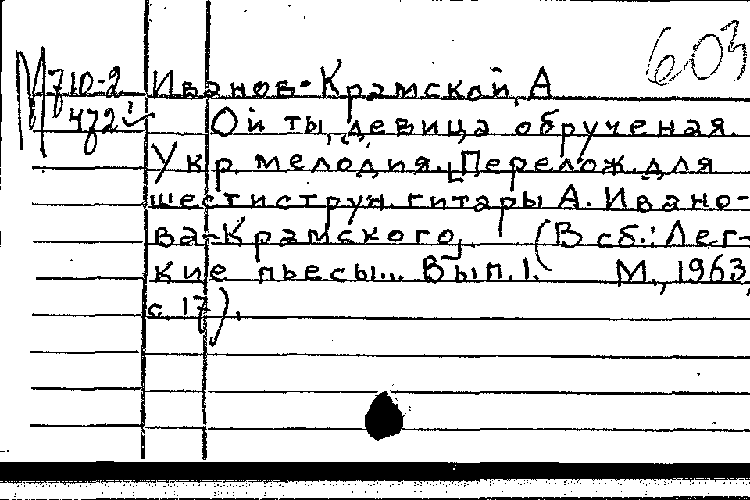 603
М 710-2 Иванов-Крамской, А
472 Ой ты, девица обрученая.
Укр. мелодия. Перелож. для
шестиструн. гитары А. Ивано-
ва-Крамского, (В сб.: Лег-
кие пьесы... Вып. 1. М., 1963,
с. 17).